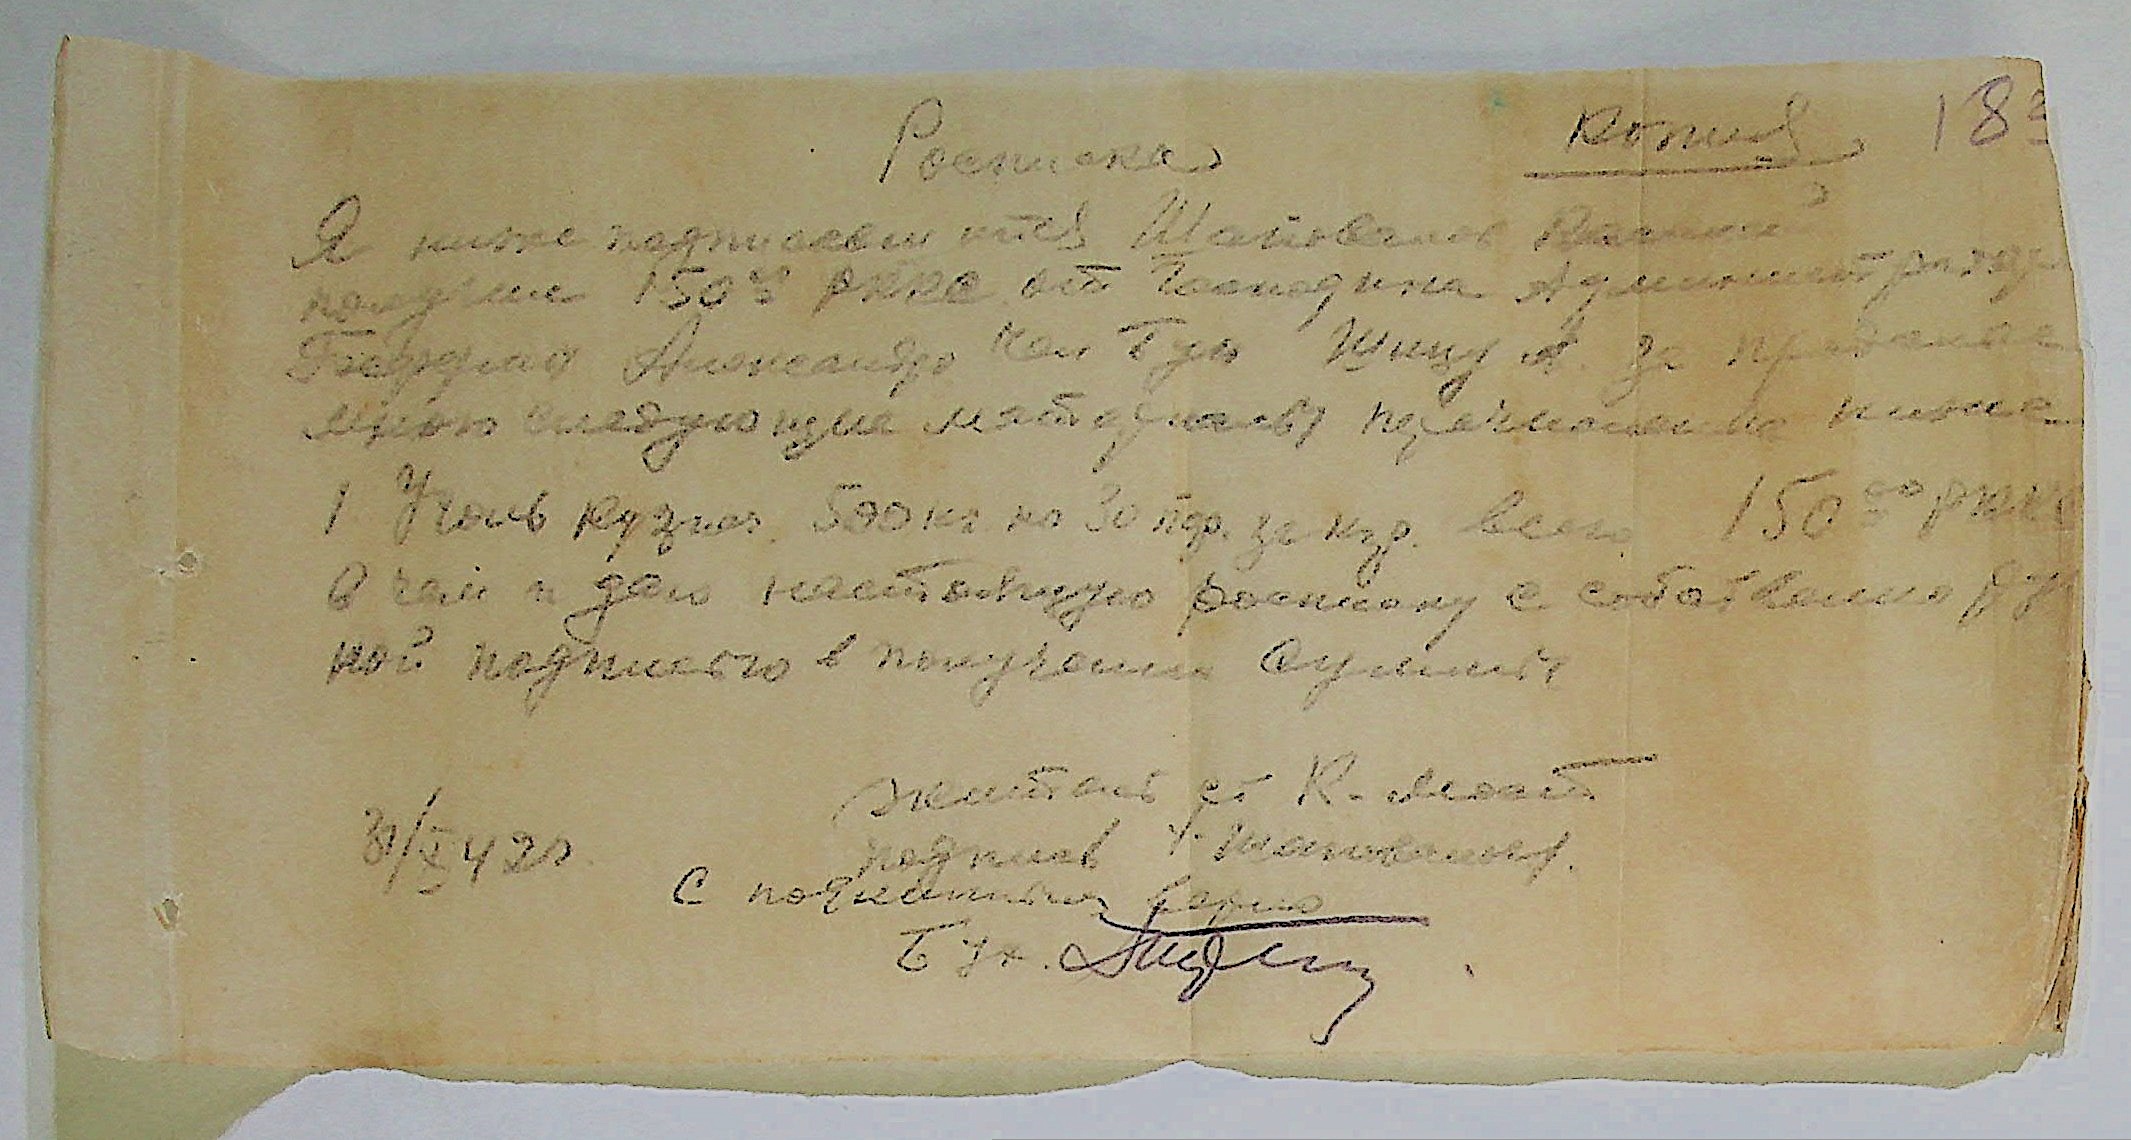 Росписка Копия 183
Я ниже подписавшийся Шаповалов
получил 150 РККС от Господина Администратора
Александр Шицу А. за проданые
мною следующие материалы перечисленно ниже
1 Уголь кузнеч. 500 кг по 30 пф. за кгр. всего 150 00 РККС
в чем и даю настоящую росписку с собственно руч
ной подписью в получении суммы
житель ст К. мост
31/X 42 г. подпись Шаповалов.
С подлинным верно
Бух.